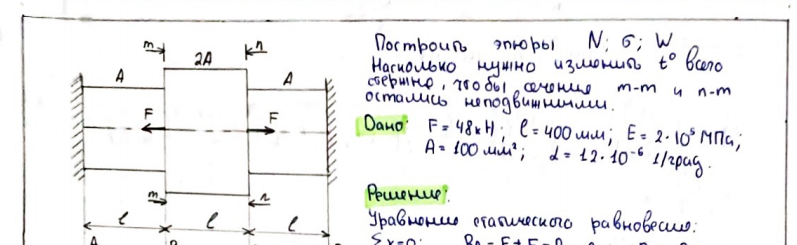 m
n
2A
A
A
F
F
m
n
l
l
l
A
B
Построить эпюры N; σ; W
Насколько нужно изменить t° всего
стержня, чтобы сечения m-m и n-n
остались неподвижными.
Дано: F = 48кН; l = 400 мм; E = 2·10⁵ МПа;
A = 100 мм²; α = 12·10⁻⁶ 1/град.
Решение:
Уравнение статического равновесия:
Σx=0;